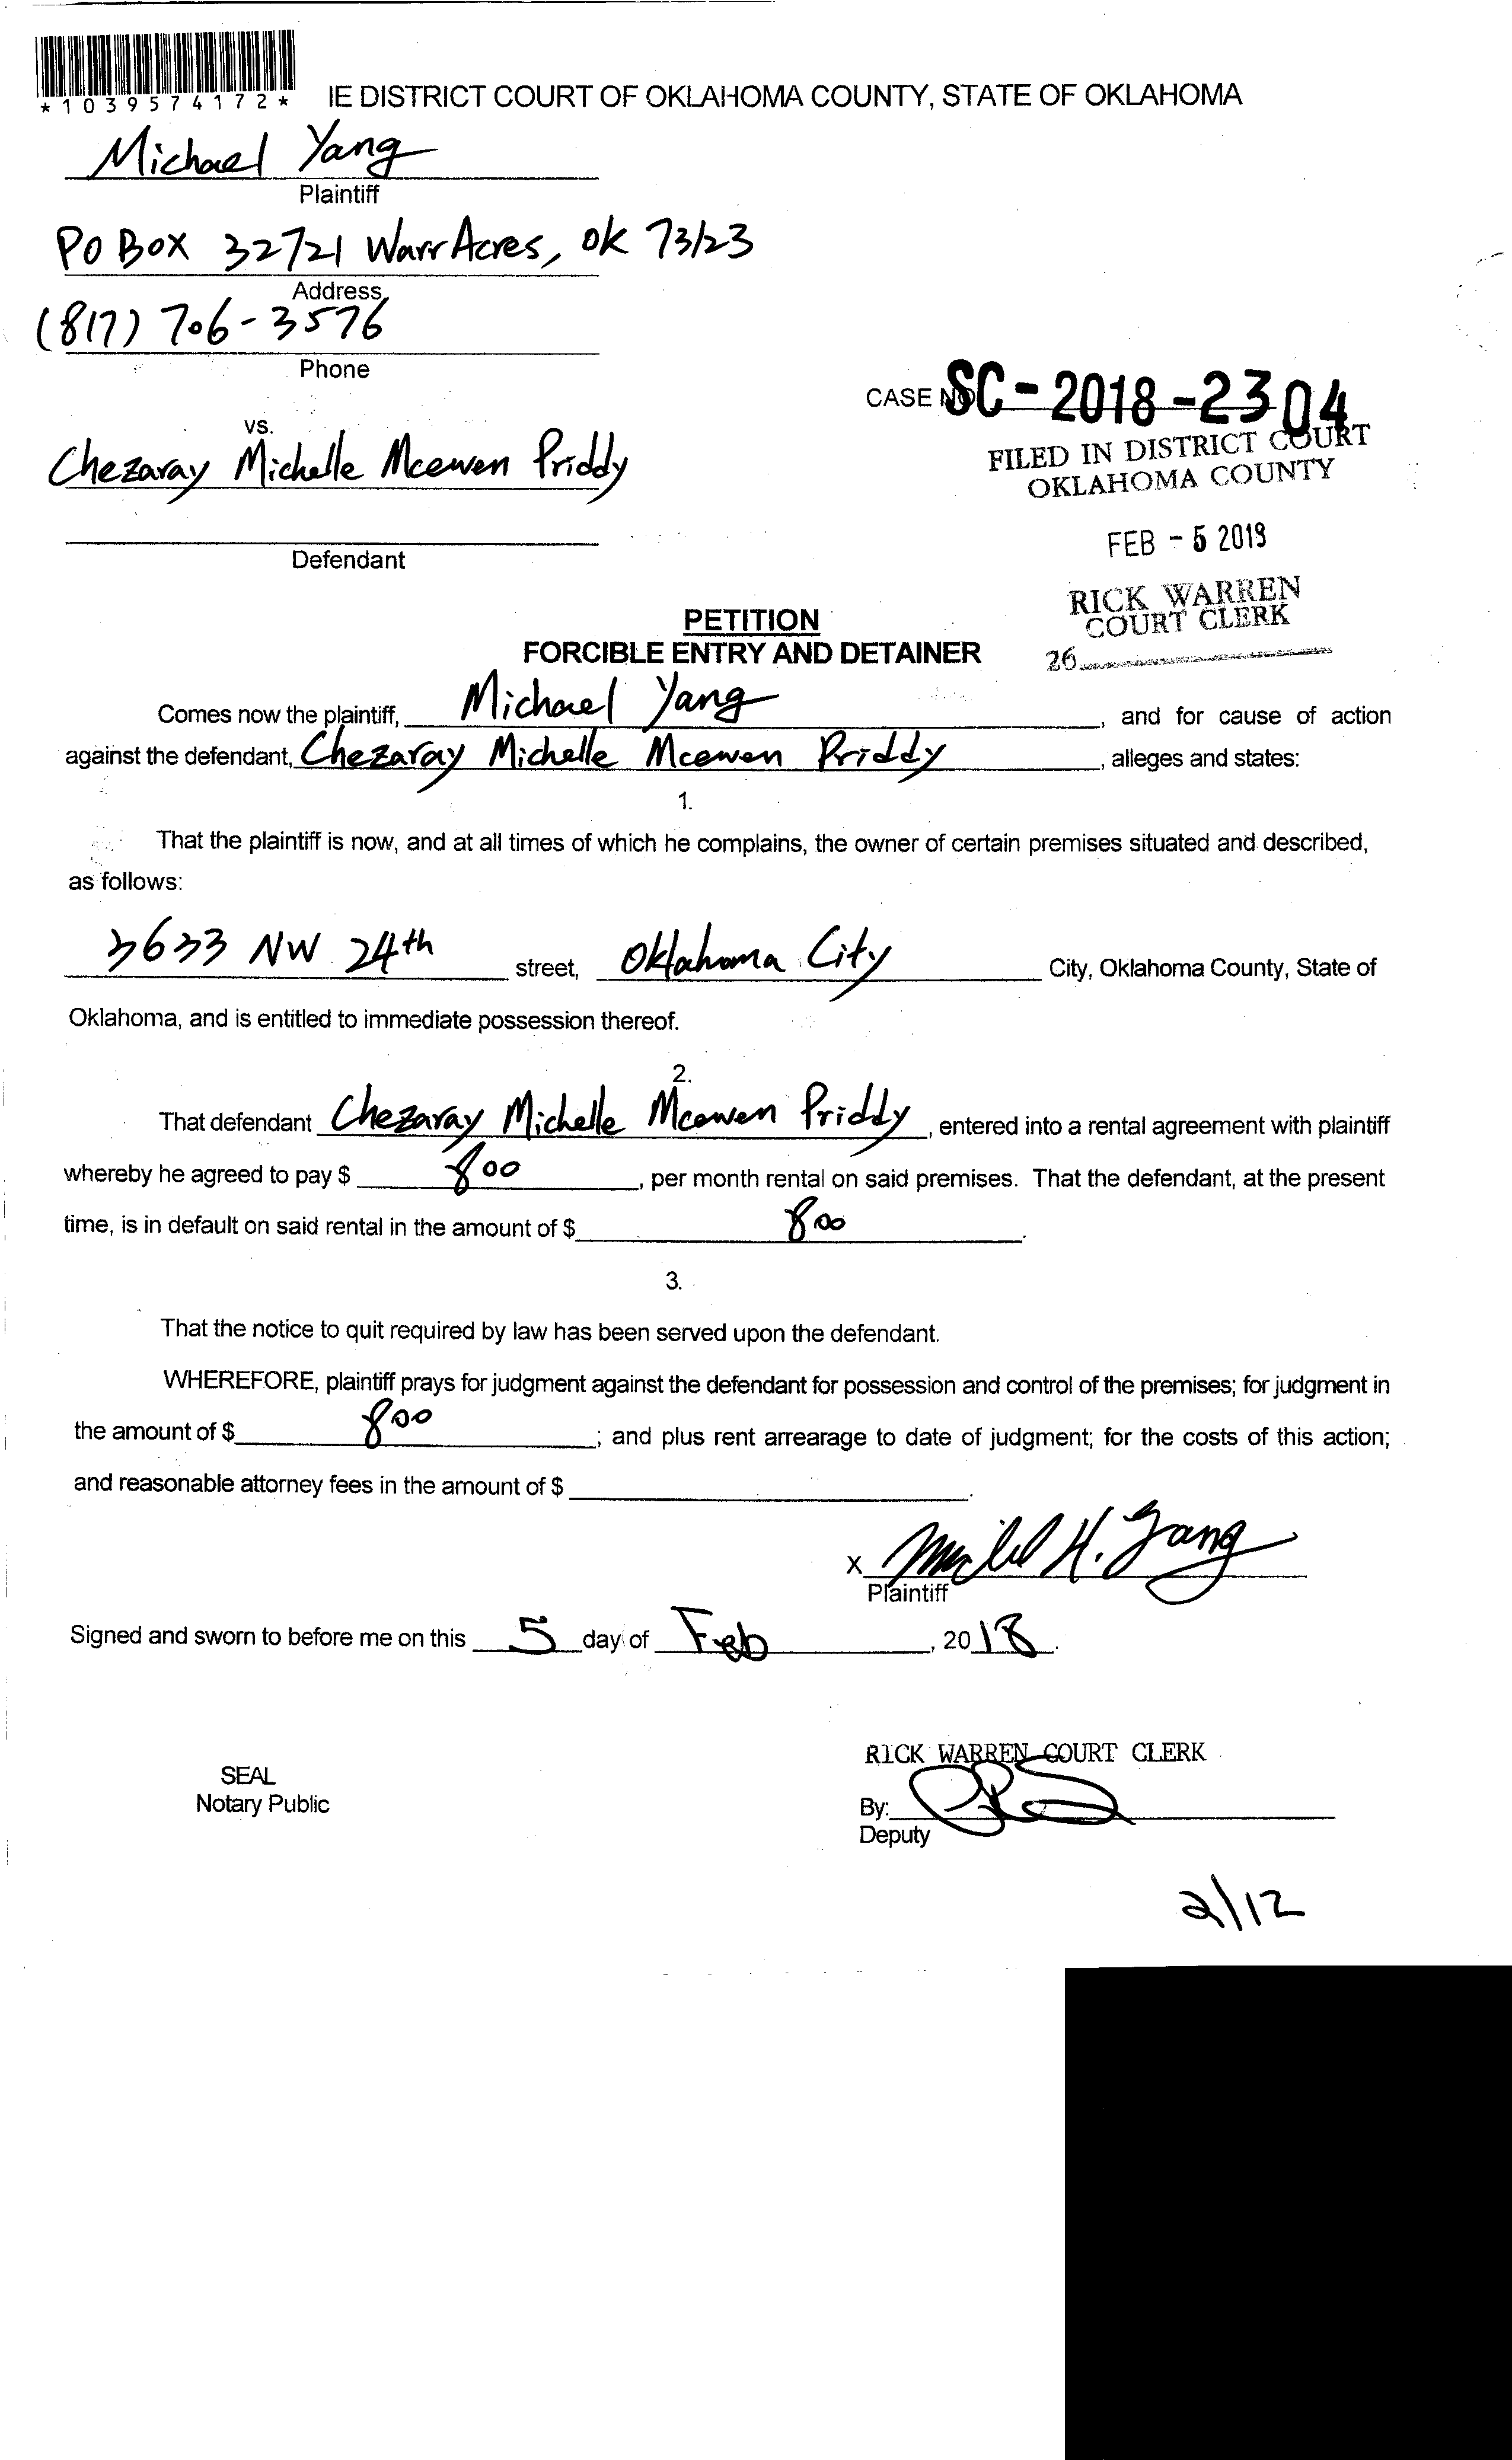 *1039574172*
IE DISTRICT COURT OF OKLAHOMA COUNTY, STATE OF OKLAHOMA
Michael Yang
Plaintiff
PO Box 32721 Warr Acres, OK 73123
Address
(817) 706-3576
Phone
CASE NO SC-2018-2304
vs.
FILED IN DISTRICT COURT
OKLAHOMA COUNTY
Chezaray Michelle Mcewen Priddy
FEB - 5 2018
Defendant
RICK WARREN
COURT CLERK
26
PETITION
FORCIBLE ENTRY AND DETAINER
Comes now the plaintiff, Michael Yang, and for cause of action
against the defendant, Chezaray Michelle Mcewen Priddy, alleges and states:
1.
That the plaintiff is now, and at all times of which he complains, the owner of certain premises situated and described,
as follows:
3633 NW 24th street, Oklahoma City City, Oklahoma County, State of
Oklahoma, and is entitled to immediate possession thereof.
2.
That defendant Chezaray Michelle Mcewen Priddy, entered into a rental agreement with plaintiff
whereby he agreed to pay $ 800, per month rental on said premises. That the defendant, at the present
time, is in default on said rental in the amount of $ 800.
3.
That the notice to quit required by law has been served upon the defendant.
WHEREFORE, plaintiff prays for judgment against the defendant for possession and control of the premises; for judgment in
the amount of $ 800; and plus rent arrearage to date of judgment; for the costs of this action;
and reasonable attorney fees in the amount of $ .
X Michael H. Yang
Plaintiff
Signed and sworn to before me on this 5 day of Feb, 2018.
RICK WARREN COURT CLERK
SEAL
Notary Public
By:
Deputy
2/12